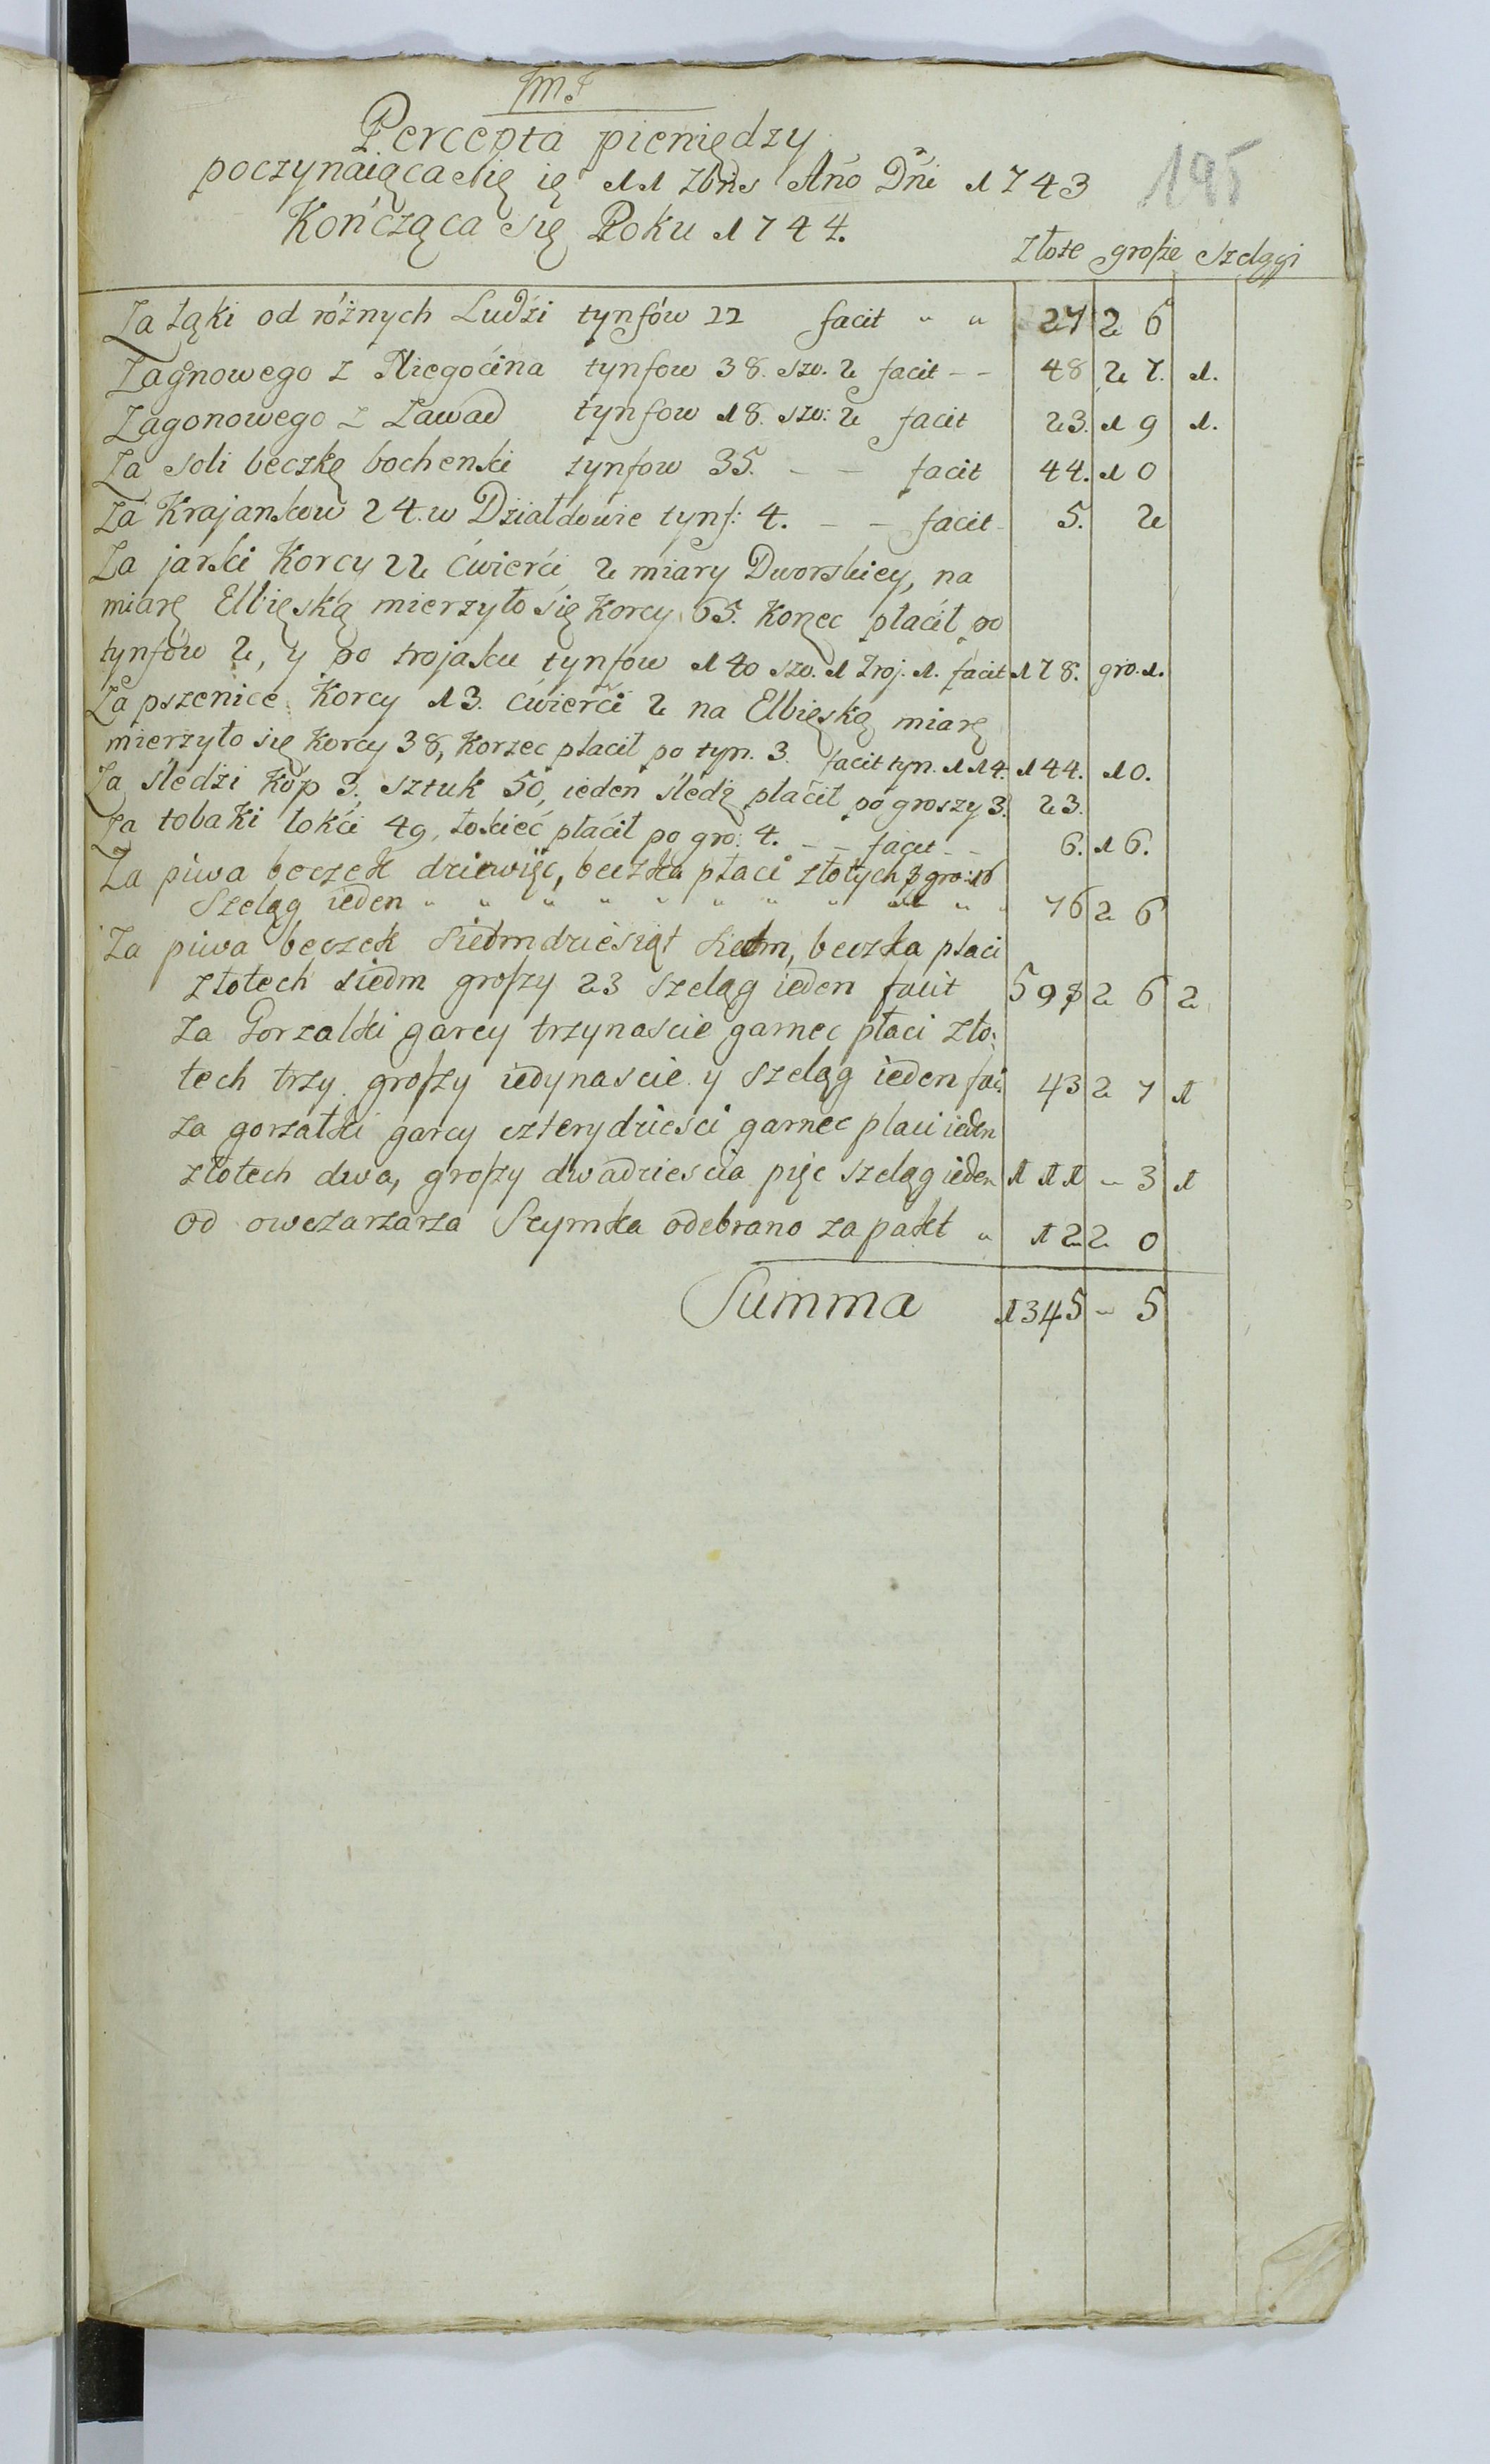 JmJ
Percepta pieniędzy
poczynaiąca się ię 11 Xbris Año Dñi 1743
195
Kończąca się Roku 1744.
złote grosze szelągi
Za łąki od różnych Ludżi tynfów 22 facit " " 27 26
Zagnowego z Niegoćina tynfow 38. szo. 2 facit - - 48 27. 1.
Zagonowego z Zawad tynfow 18. szo: 2 facit 23. 19 1.
Za soli beczkę bochenski tynfow 35. - - facit 44. 10
Za Krajanskow 24. w Działdowie tynf: 4. - - facit - 5. 2
Za jarki Korcy 22 ćwierći 2 miary Dworskiey, na
miarę Elbięską mierzyło się Korcy 65. Korzec płacił po
tynfów 2, y po trojaku tynfow 140 szo. 1 troj. 1. facit 178. gro. 1.
Za pszenice Korcy 13. ćwierći 2 na Elbięską miarę
mierzyło się Korcy 38, Korzec płacił po tyn. 3. facit tyn. 114. 144. 10.
Za śledżi kóp 3. sztuk 50, ieden śledż płacił po groszy 3. 23.
Za tobaki łokći 49, łokieć płaćił po gro: 4. - - facit - - 6. 16.
Za piwa beczek dziewięc, beczka płaci złotych 8 gro: 16
Szeląg ieden " " " " " " " " " " " 76 26
Za piwa beczek siedmdziesiąt siedm, beczka płaci
złotech siedm groszy 23 szeląg ieden facit 598 26 2
Za Gorzalki garcy trzynascie garnec płaci zło:
tech trzy groszy iedynascie y szeląg ieden fac. 43 27 1
Za gorzałki garcy czterydziesci garnec placi ieden
złotech dwa, groszy dwadziescia pięc szeląg ieden 111 " 3 1
Od owczarzarza Szymka odebrano za pakt " 12 20
Summa 1345 " 5